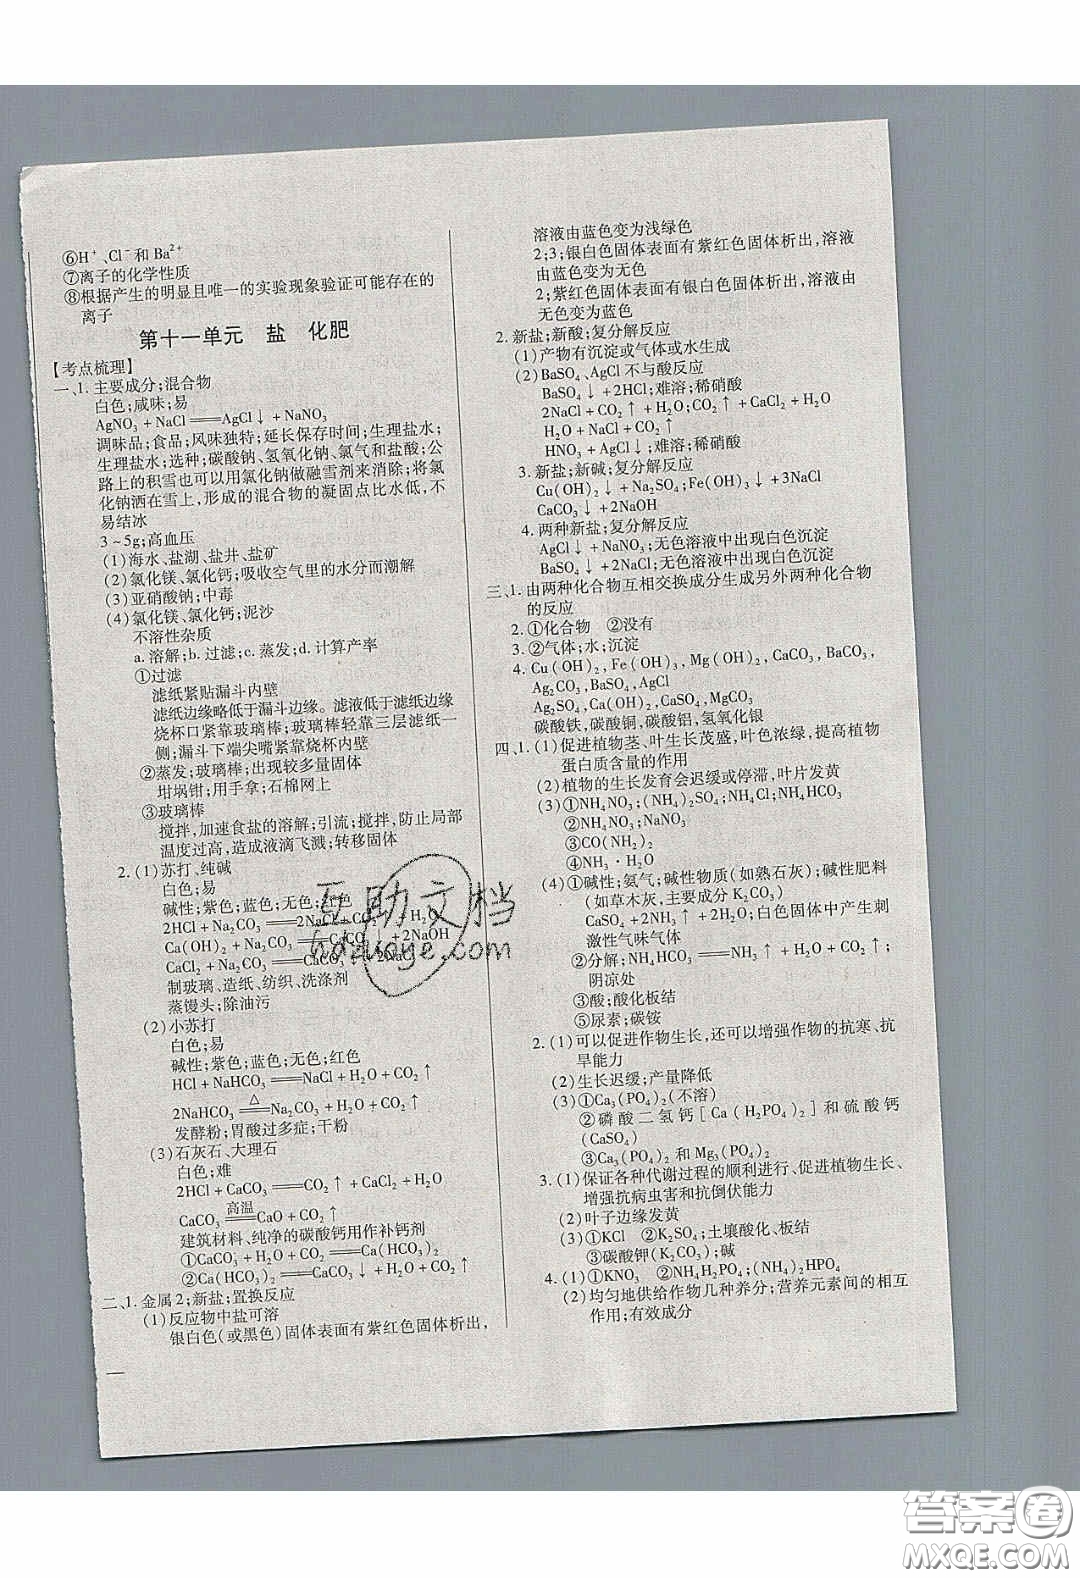 ⑥H⁺、Cl⁻和Ba²⁺
⑦离子的化学性质
⑧根据产生的明显且唯一的实验现象验证可能存在的
离子
第十一单元 盐 化肥
【考点梳理】
一、1. 主要成分;混合物
白色;咸味;易
AgNO₃+NaCl══AgCl↓+NaNO₃
调味品;食品;风味独特;延长保存时间;生理盐水;
生理盐水;选种;碳酸钠、氢氧化钠、氯气和盐酸;公
路上的积雪也可以用氯化钠做融雪剂来消除;将氯
化钠洒在雪上,形成的混合物的凝固点比水低,不
易结冰
3~5g;高血压
(1)海水、盐湖、盐井、盐矿
(2)氯化镁、氯化钙;吸收空气里的水分而潮解
(3)亚硝酸钠;中毒
(4)氯化镁、氯化钙;泥沙
不溶性杂质
a. 溶解;b. 过滤;c. 蒸发;d. 计算产率
①过滤
滤纸紧贴漏斗内壁
滤纸边缘略低于漏斗边缘。滤液低于滤纸边缘
烧杯口紧靠玻璃棒;玻璃棒轻靠三层滤纸一
侧;漏斗下端尖嘴紧靠烧杯内壁
②蒸发;玻璃棒;出现较多量固体
坩埚钳;用手拿;石棉网上
③玻璃棒
搅拌,加速食盐的溶解;引流;搅拌,防止局部
温度过高,造成液滴飞溅;转移固体
2. (1)苏打、纯碱
白色;易
碱性;紫色;蓝色;无色;红色
2HCl+Na₂CO₃══2NaCl+CO₂↑+H₂O
Ca(OH)₂+Na₂CO₃══CaCO₃↓+2NaOH
CaCl₂+Na₂CO₃══CaCO₃↓+2NaCl
制玻璃、造纸、纺织、洗涤剂
蒸馒头;除油污
(2)小苏打
白色;易
碱性;紫色;蓝色;无色;红色
HCl+NaHCO₃══NaCl+H₂O+CO₂↑
△
2NaHCO₃══Na₂CO₃+H₂O+CO₂↑
发酵粉;胃酸过多症;干粉
(3)石灰石、大理石
白色;难
2HCl+CaCO₃══CO₂↑+CaCl₂+H₂O
高温
CaCO₃══CaO+CO₂↑
建筑材料、纯净的碳酸钙用作补钙剂
①CaCO₃+H₂O+CO₂══Ca(HCO₃)₂
②Ca(HCO₃)₂══CaCO₃↓+H₂O+CO₂↑
二、1. 金属2;新盐;置换反应
(1)反应物中盐可溶
银白色(或黑色)固体表面有紫红色固体析出,
溶液由蓝色变为浅绿色
2;3;银白色固体表面有紫红色固体析出,溶液
由蓝色变为无色
2;紫红色固体表面有银白色固体析出,溶液由
无色变为蓝色
2. 新盐;新酸;复分解反应
(1)产物有沉淀或气体或水生成
(2)BaSO₄、AgCl不与酸反应
BaSO₄↓+2HCl;难溶;稀硝酸
2NaCl+CO₂↑+H₂O;CO₂↑+CaCl₂+H₂O
H₂O+NaCl+CO₂↑
HNO₃+AgCl↓;难溶;稀硝酸
3. 新盐;新碱;复分解反应
Cu(OH)₂↓+Na₂SO₄;Fe(OH)₃↓+3NaCl
CaCO₃↓+2NaOH
4. 两种新盐;复分解反应
AgCl↓+NaNO₃;无色溶液中出现白色沉淀
BaSO₄↓+2NaCl;无色溶液中出现白色沉淀
三、1. 由两种化合物互相交换成分生成另外两种化合物
的反应
2. ①化合物 ②没有
3. ②气体;水;沉淀
4. Cu(OH)₂,Fe(OH)₃,Mg(OH)₂,CaCO₃,BaCO₃,
Ag₂CO₃,BaSO₄,AgCl
Ag₂SO₄,Ca(OH)₂,CaSO₄,MgCO₃
碳酸铁,碳酸铜,碳酸铝,氢氧化银
四、1. (1)促进植物茎、叶生长茂盛,叶色浓绿,提高植物
蛋白质含量的作用
(2)植物的生长发育会迟缓或停滞,叶片发黄
(3)①NH₄NO₃;(NH₄)₂SO₄;NH₄Cl;NH₄HCO₃
②NH₄NO₃;NaNO₃
③CO(NH₂)₂
④NH₃·H₂O
(4)①碱性;氨气;碱性物质(如熟石灰);碱性肥料
(如草木灰,主要成分K₂CO₃)
CaSO₄+2NH₃↑+2H₂O;白色固体中产生刺
激性气味气体
②分解;NH₄HCO₃══NH₃↑+H₂O+CO₂↑;
阴凉处
③酸;酸化板结
⑤尿素;碳铵
2. (1)可以促进作物生长,还可以增强作物的抗寒、抗
旱能力
(2)生长迟缓;产量降低
(3)①Ca₃(PO₄)₂(不溶)
②磷酸二氢钙[Ca(H₂PO₄)₂]和硫酸钙
(CaSO₄)
③Ca₃(PO₄)₂和Mg₃(PO₄)₂
3. (1)保证各种代谢过程的顺利进行、促进植物生长、
增强抗病虫害和抗倒伏能力
(2)叶子边缘发黄
(3)①KCl ②K₂SO₄;土壤酸化、板结
③碳酸钾(K₂CO₃);碱
4. (1)①KNO₃ ②NH₄H₂PO₄;(NH₄)₂HPO₄
(2)均匀地供给作物几种养分;营养元素间的相互
作用;有效成分
互助文档
hdzuoye.com
答案卷
MXQE.COM